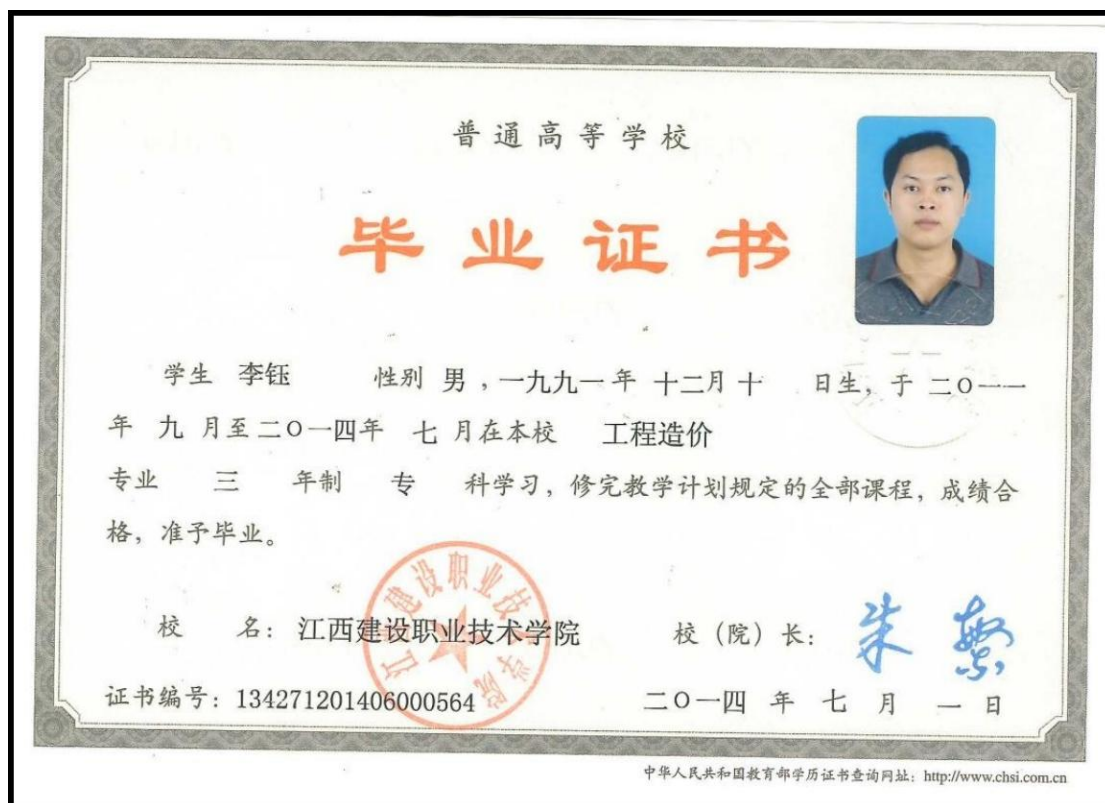 普通高等学校
毕业证书
学生 李钰 性别 男，一九九一年 十二月 十 日生，于 二〇一一
年 九 月至二〇一四年 七 月在本校 工程造价
专业 三 年制 专 科学习，修完教学计划规定的全部课程，成绩合
格，准予毕业。
江西建设职业技术学院
校 名：江西建设职业技术学院 校（院）长：朱 繁
证书编号：134271201406000564 二〇一四 年 七 月 一 日
中华人民共和国教育部学历证书查询网址：http://www.chsi.com.cn